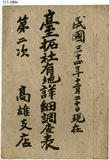 515-0884
民國三十四年十一月三十日現在
臺拓社有地詳細調查表
第二次
高雄支店